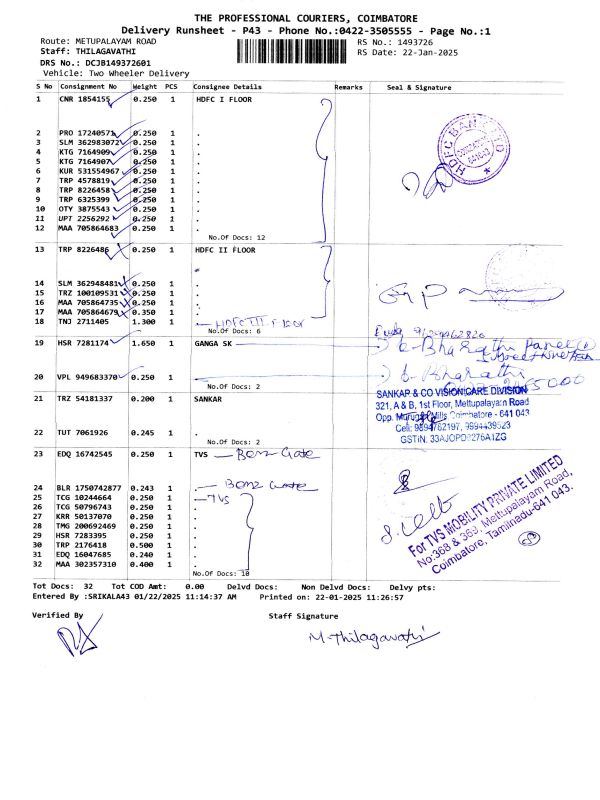 THE PROFESSIONAL COURIERS, COIMBATORE
Delivery Runsheet - P43 - Phone No.:0422-3505555 - Page No.:1
Route: METUPALAYAM ROAD RS No.: 1493726
Staff: THILAGAVATHI RS Date: 22-Jan-2025
DRS No.: DCJB149372601
Vehicle: Two Wheeler Delivery
S No Consignment No Weight PCS Consignee Details Remarks Seal & Signature
1 CNR 1854155 0.250 1 HDFC I FLOOR
2 PRO 17240571 0.250 1 .
3 SLM 362983072 0.250 1 .
4 KTG 7164909 0.250 1 .
5 KTG 7164907 0.250 1 .
6 KUR 531554967 0.250 1 .
7 TRP 4578819 0.250 1 .
8 TRP 8226458 0.250 1 .
9 TRP 6325399 0.250 1 .
10 OTY 3875543 0.250 1 .
11 UPT 2256292 0.250 1 .
12 MAA 705864683 0.250 1 .
No.Of Docs: 12
HDFC BANK LTD
13 TRP 8226486 0.250 1 HDFC II FLOOR
14 SLM 362948481 0.250 1 .
15 TRZ 100109531 0.250 1 .
16 MAA 705864735 0.250 1 .
17 MAA 705864679 0.350 1 .
18 TNJ 2711405 1.300 1 . HDFC III Floor
No.Of Docs: 6
19 HSR 7281174 1.650 1 GANGA SK
20 VPL 949683370 0.250 1 .
No.Of Docs: 2
21 TRZ 54181337 0.200 1 SANKAR
22 TUT 7061926 0.245 1 .
No.Of Docs: 2
SANKAR & CO VISION CARE DIVISION
321, A & B, 1st Floor, Mettupalayam Road
Opp. Murugan Mills Coimbatore - 641 043
Cell: 9894762197, 9994439523
GSTIN: 33AJOPD2276A1ZG
23 EDQ 16742545 0.250 1 TVS - Benz Gate
24 BLR 1750742877 0.243 1 . - Benz Gate
25 TCG 10244664 0.250 1 . - TVS
26 TCG 50796743 0.250 1 .
27 KRR 50137070 0.250 1 .
28 TMG 200692469 0.250 1 .
29 HSR 7283395 0.250 1 .
30 TRP 2176418 0.500 1 .
31 EDQ 16047685 0.240 1 .
32 MAA 302357310 0.400 1 .
No.Of Docs: 10
For TVS MOBILITY PRIVATE LIMITED
No:368 & 369, Mettupalayam Road,
Coimbatore, Tamilnadu-641 043.
Tot Docs: 32 Tot COD Amt: 0.00 Delvd Docs: Non Delvd Docs: Delvy pts:
Entered By :SRIKALA43 01/22/2025 11:14:37 AM Printed on: 22-01-2025 11:26:57
Verified By Staff Signature
M. Thilagavathi